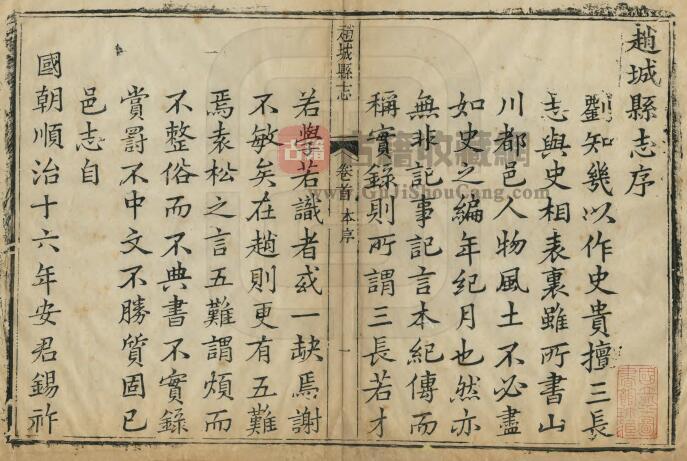 趙城縣志序
劉知幾以作史貴擅三長
志與史相表裏雖所書山
川都邑人物風土不必盡
如史之編年紀月也然亦
無非記事記言本紀傳而
稱實錄則所謂三長若才
趙城縣志
卷首 本序
一
若學若識者或一缺焉謝
不敏矣在趙則更有五難
焉袁松之言五難謂煩而
不整俗而不典書不實錄
賞罰不中文不勝質固已
邑志自
國朝順治十六年安君錫祚
古籍
古籍收藏網
www.GuJiShouCang.com